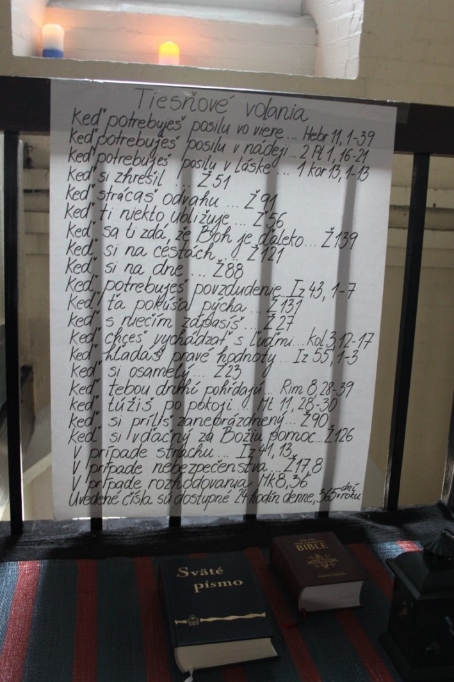 Tiesňové volania
Keď potrebuješ posilu vo viere... Hebr 11, 1-39
Keď potrebuješ posilu v nádeji ... 2 Pt 1, 16-21
Keď potrebuješ posilu v láske ... 1 Kor 13, 1-13
Keď si zhrešil ... Ž 51
Keď strácaš odvahu ... Ž 91
Keď ti niekto ubližuje ... Ž 56
Keď sa ti zdá, že Boh je ďaleko... Ž 139
Keď si na cestách ... Ž 121
Keď si na dne ... Ž 88
Keď potrebuješ povzbudenie Iz 43, 1-7
Keď ťa pokúša pýcha ... Ž 131
Keď s niečím zápasíš ... Ž 27
Keď chceš vychádzať s ľuďmi... Kol 3,12-17
Keď hľadáš pravé hodnoty ... Iz 55, 1-3
Keď si osamelý ... Ž 23
Keď tebou druhí pohŕdajú ... Rim 8, 28-39
Keď túžiš po pokoji ... Mt 11, 28-30
Keď si príliš zaneprázdnený ... Ž 90
Keď si vďačný za Božiu pomoc Ž 126
V prípade strachu ... Iz 41, 13
V prípade nebezpečenstva ... Ž 17,8
V prípade rozhodovania ... Mk 8, 36
Uvedené čísla sú dostupné 24 hodín denne, 365 dní v roku
Sväté
písmo
BIBLE